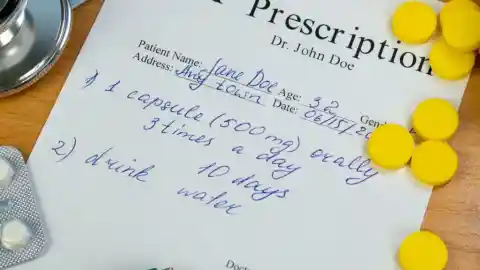 Prescription
Dr. John Doe
Patient Name: Jane Doe Age: 32
Address: Any town Date: 06/15/20
1) 1 capsule (500mg) orally
3 times a day
10 days
2) drink water